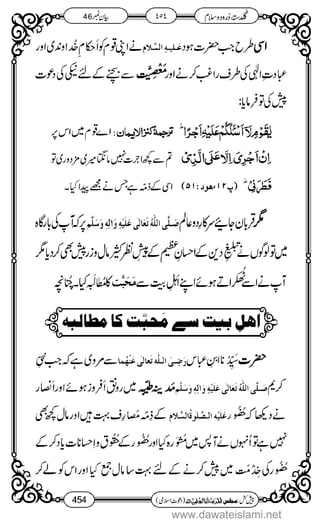 گلدستۂ دُرود و سلام
٤٥٤
بیان نمبر 46
اسی طرح جب حضرت ہود عَلَیْہِ السَّلام نے اپنی قوم کو اَحکامِ خُداوندی اور
عبادتِ الٰہی کی طرف راغب کرنے اور مَعْصِیَّت سے بچنے کے لئے نیکی کی دعوت
پیش کی تو فرمایا:
یٰقَوْمِ لَاۤ اَسْـَٔلُكُمْ عَلَیْهِ اَجْرًاؕ ترجمۂ کنز الایمان: اے قوم میں اس پر
اِنْ اَجْرِیَ اِلَّا عَلَى الَّذِیْ تم سے کچھ اجرت نہیں مانگتا میری مزدوری تو
فَطَرَنِیْؕ (پ۱۲، ھود: ۵۱) اسی کے ذمہ ہے جس نے مجھے پیدا کیا۔
مگر قربان جائیے! سرکارِ دو عالم صَلَّی اللّٰہُ تَعَالٰی عَلَیْہِ وَاٰلِہٖ وَسَلَّم پر کہ آپ کی بارگاہ
میں تو لوگوں نے تبلیغِ دین کے احسانِ عظیم کے پیشِ نظر کثیر مال و زر بھی پیش کر دیا مگر
آپ نے اُسے ٹھکراتے ہوئے اپنے اَہْلِ بیت سے مَحَبَّت کا مُطالَبہ کیا۔ چُنانچِہ
اھلِ بیت سے مَحبَّت کا مطالبہ
حضرت سَیِّدُنا ابنِ عباس رَضِیَ اللّٰہُ تَعَالٰی عَنْہُمَا سے مروی ہے کہ جب نبیِّ
کریم صَلَّی اللّٰہُ تَعَالٰی عَلَیْہِ وَاٰلِہٖ وَسَلَّم مدینۂ طیّبہ میں رونق افروز ہوئے اور اَنصار
نے دیکھا کہ حُضُور عَلَیْہِ الصَّلٰوۃُ وَالسَّلام کے ذِمّہ مَصارِف بہت ہیں اور مال بھی کچھ
نہیں ہے تو اُنہوں نے آپس میں مشورہ کیا اور حُضُور کے حُقُوق و اِحسانات یاد کرکے
حُضُور کی خِدمَت میں پیش کرنے کے لئے بہت سا مال جمع کیا اور اس کو لے کر
454
پیش کش: مجلس اَلْمَدِیْنَۃُ الْعِلْمِیَّۃ (دعوتِ اسلامی)
www.dawateislami.net